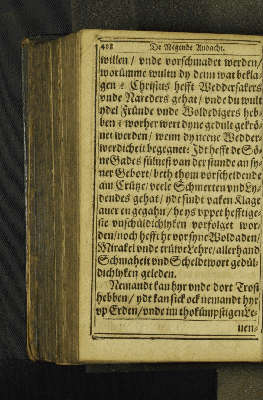 488 De Negende Andacht.
willen / vnde vorschmadet werden /
worümme wultu dy denn wat bekla-
gen? Christus hefft Weddersakers
vnde Nareders gehat / vnde du wult
ydel Fründe vnde Woldedigers heb-
ben? worher wert dyne gedult gekrö-
net werden / wenn dy neene Wedder-
werdicheit begegnet? Jdt hefft de Sö-
ne Gades sülvest van der stunde an sy-
ner Gebort / beth thom vorscheidende
am Crütze / veele Schmerten vnd Ly-
dendes gehat / ydt sindt vaken Klage
auer en gegahn / he ys vppet hefftige-
ste vnschüldichlyken vorfolget wor-
den / noch hefft he vor syne Woldaden /
Mirakel vnde trüwe Lehre / allerhand
Schmaheit vnd Scheldtwort gedül-
dichlyken geleden.
Nemandt kan hyr vnde dort Trost
hebben / ydt kan sick ock nemandt hyr
vp Erden / vnde im thokümpstigen Le-
uen-